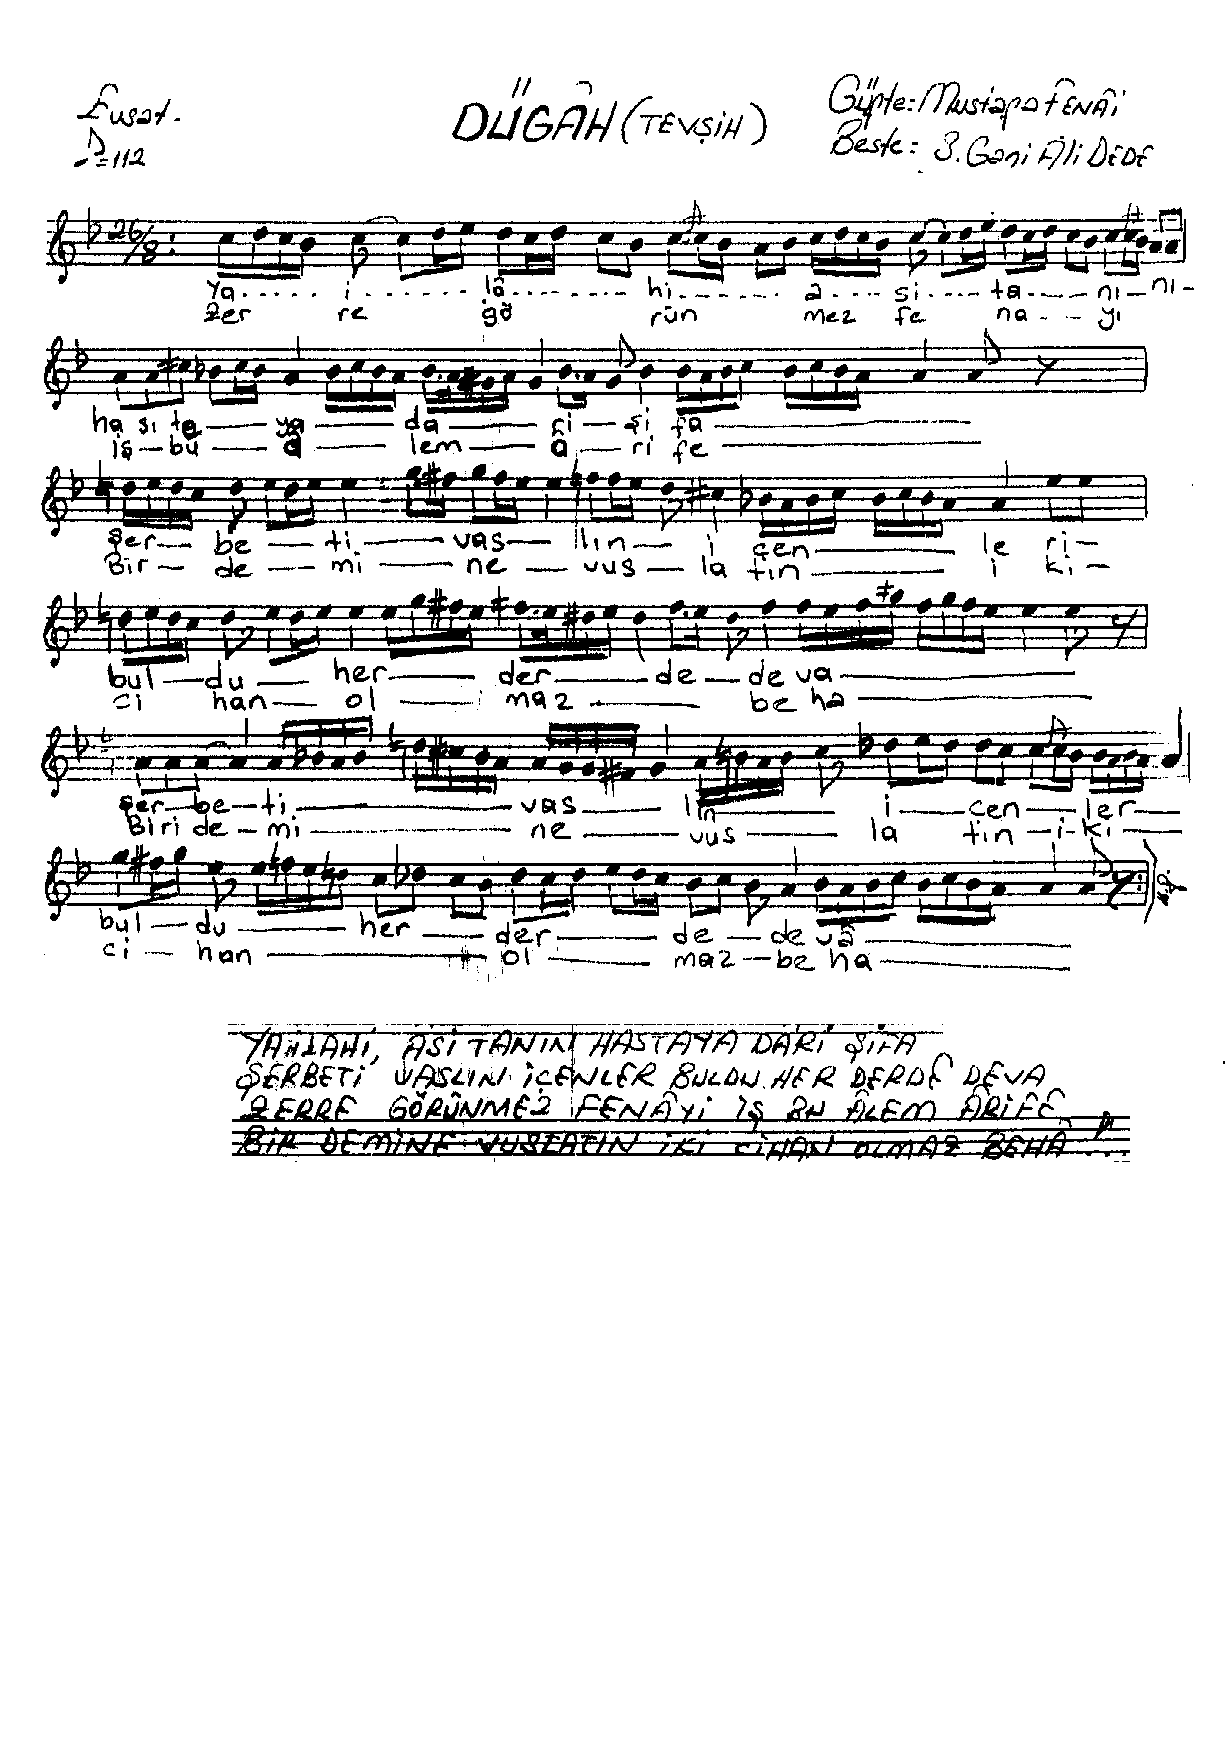 Evsat.
DÜGÂH (TEVŞİH)
Güfte: Mustafa FENÂİ
Beste: Ş. Gani Âli DEDE
♪=112
26/8
Ya..... i...... lâ....... hi..... a.... si.. ta.... nı- nı-
Zer re gö rün mez fe na... yı
ha sı ta — ya — da — ri — şi fa —
İş — bu — â — lem — â — ri fe —
Şer — be — ti — vas — lın — i çen — le ri —
Bir — de — mi — ne — vus — la tın — i ki —
bul — du — her — der — de — de va —
ci han — ol — maz — be ha —
Şer — be — ti — vas — lın — i — çen — ler —
Biri de — mi — ne — vus — la tın — i — ki —
bul — du — her — der — de — de vâ —
ci — han — ol — maz — be ha —
YA İLAHİ, ASİTANIN HASTAYA DARİ ŞİFA
ŞERBETİ VASLINI İÇENLER BULDU HER DERDE DEVA
ZERRE GÖRÜNMEZ FENÂYİ İŞ BU ÂLEM ÂRİFE
BİR DEMİNE VUSLATIN İKİ CİHAN OLMAZ BEHÂ...